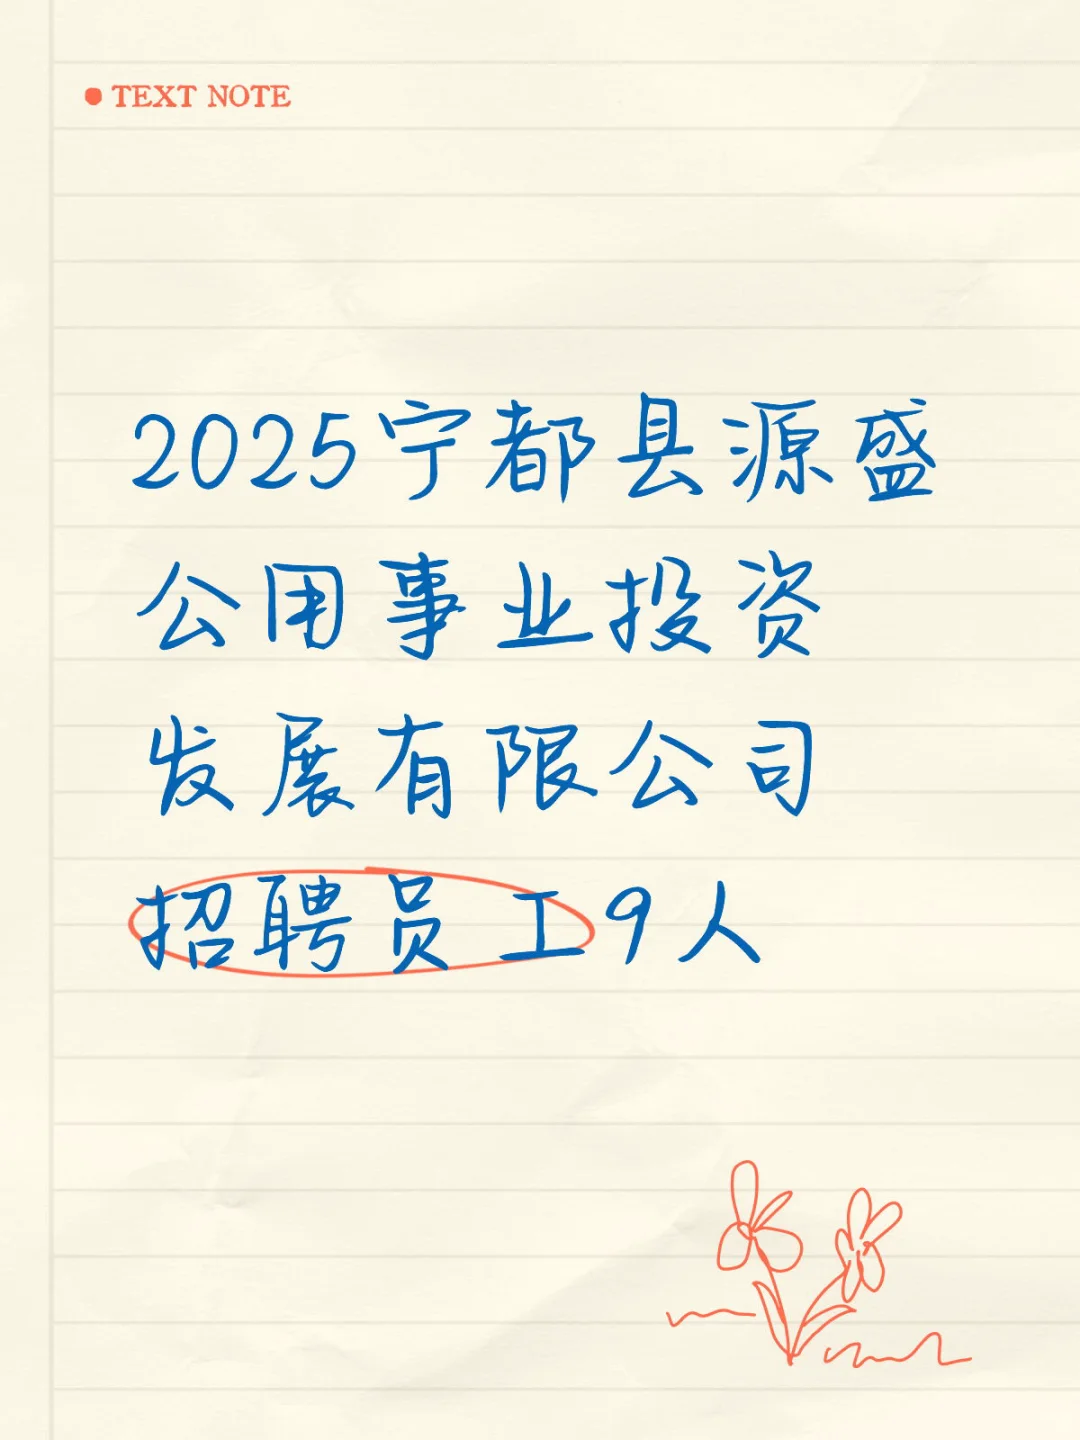 TEXT NOTE
2025宁都县源盛
公用事业投资
发展有限公司
招聘员工9人